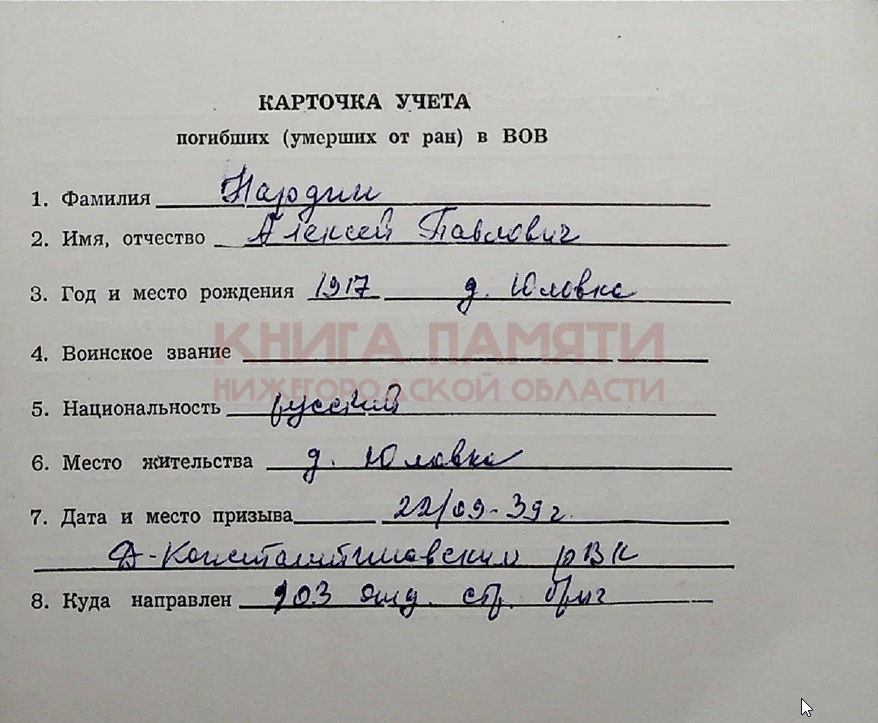 КАРТОЧКА УЧЕТА
погибших (умерших от ран) в ВОВ
1. Фамилия Нардин
2. Имя, отчество Алексей Павлович
3. Год и место рождения 1917 д. Юловка
КНИГА ПАМЯТИ
4. Воинское звание
НИЖЕГОРОДСКОЙ ОБЛАСТИ
5. Национальность русский
6. Место жительства д. Юловка
7. Дата и место призыва 22/09-39г.
Д-Константиновским рВК
8. Куда направлен 103 отд. стр. бриг